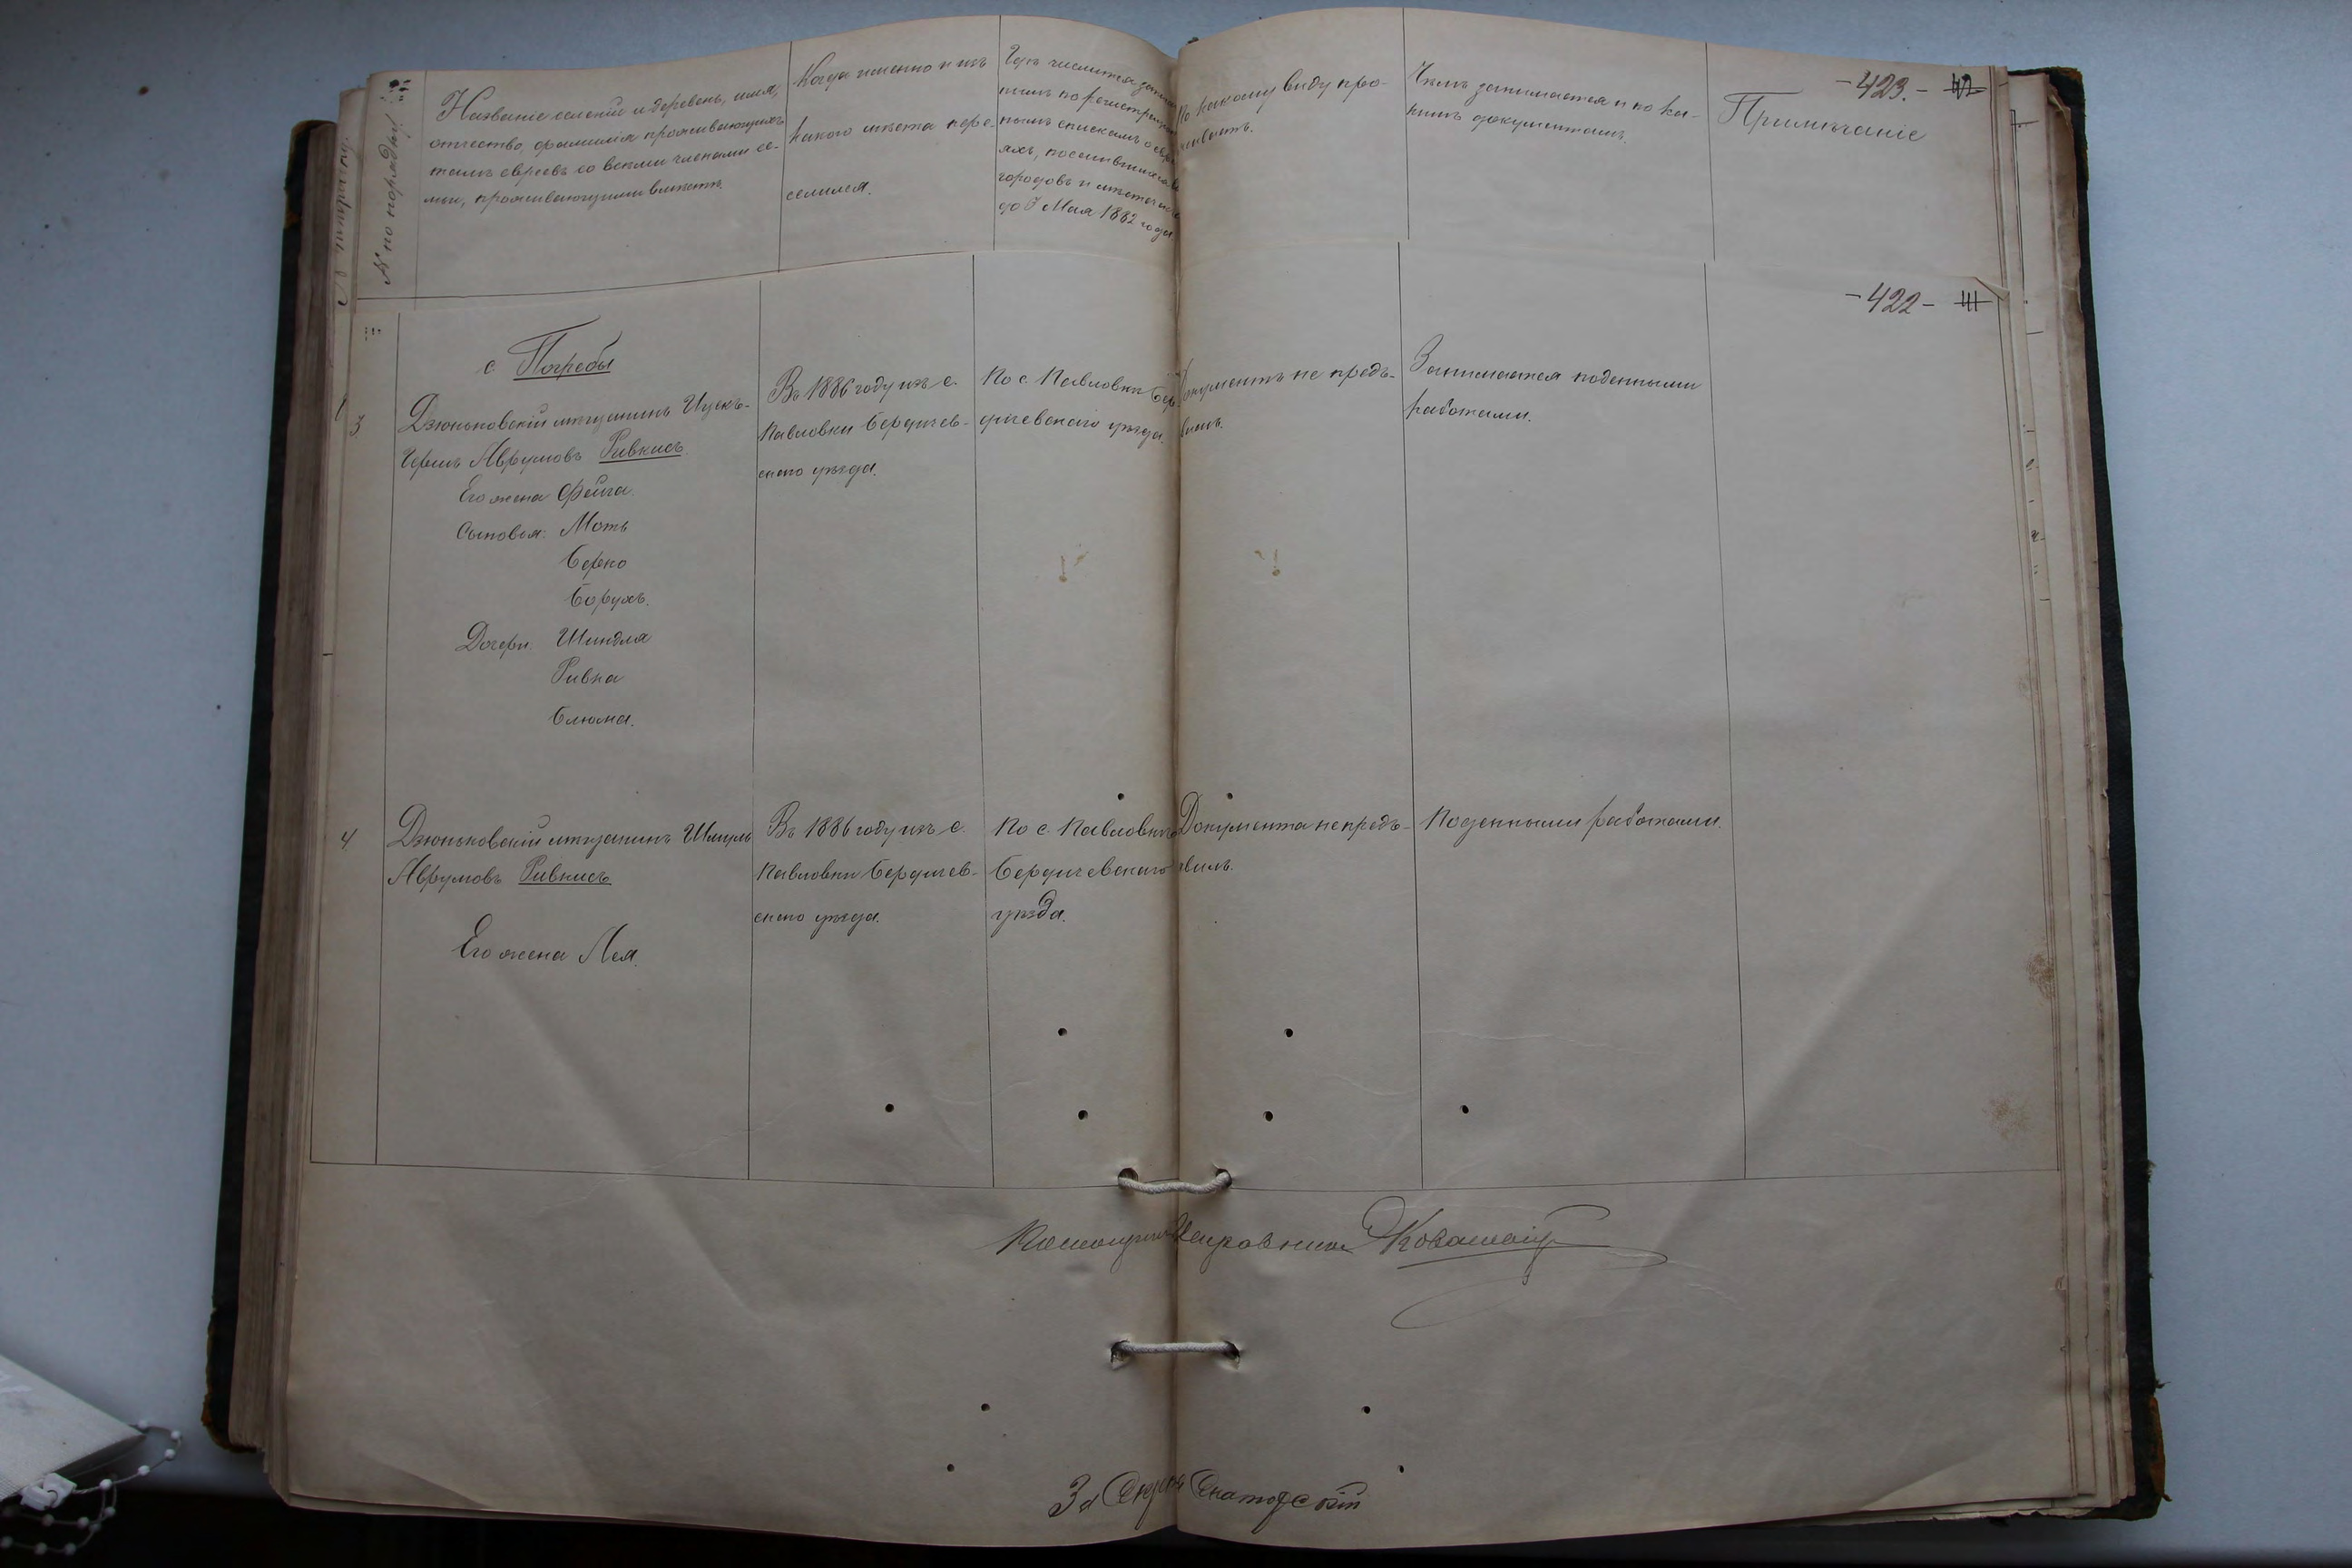 -423.- 42
№ по порядку.
Названіе селеній и деревень, имя,
отчество, фамилія проживающихъ
тамъ евреевъ со всеми членами се-
мьи, проживающими вместе.
Когда именно и изъ
какого места пере-
селился.
Где числится
нымъ спискамъ о евре-
яхъ, поселившихся въ
городовъ и местечекъ
до 3 Мая 1882 года
По какому виду про-
живаетъ.
Чемъ занимается и по ка-
кимъ документамъ.
Примечаніе
-422- 41
с Погребы
3
Дзюньковскій мещанинъ Ицекъ-
Гершъ Аврумовъ Ривкисъ.
Его жена Фейга.
Сыновья: Моть
Берко
Борухъ.
Дочери: Шиндля
Ривка
Блюма.
Въ 1886 году изъ с.
Павловки Бердичев-
скаго уезда.
По с. Павловки Бер-
дичевскаго уезда.
Документъ не предъ-
явилъ.
Занимается поденными
работами.
4
Дзюньковскій мещанинъ Шмуль
Аврумовъ Ривкисъ
Его жена Лея.
Въ 1886 году изъ с
Павловки Бердичев-
скаго уезда.
По с. Павловки
Бердичевскаго
уезда.
Документа не предъ-
явилъ.
Поденными работами.
Помощникъ Исправника
За Секрет.